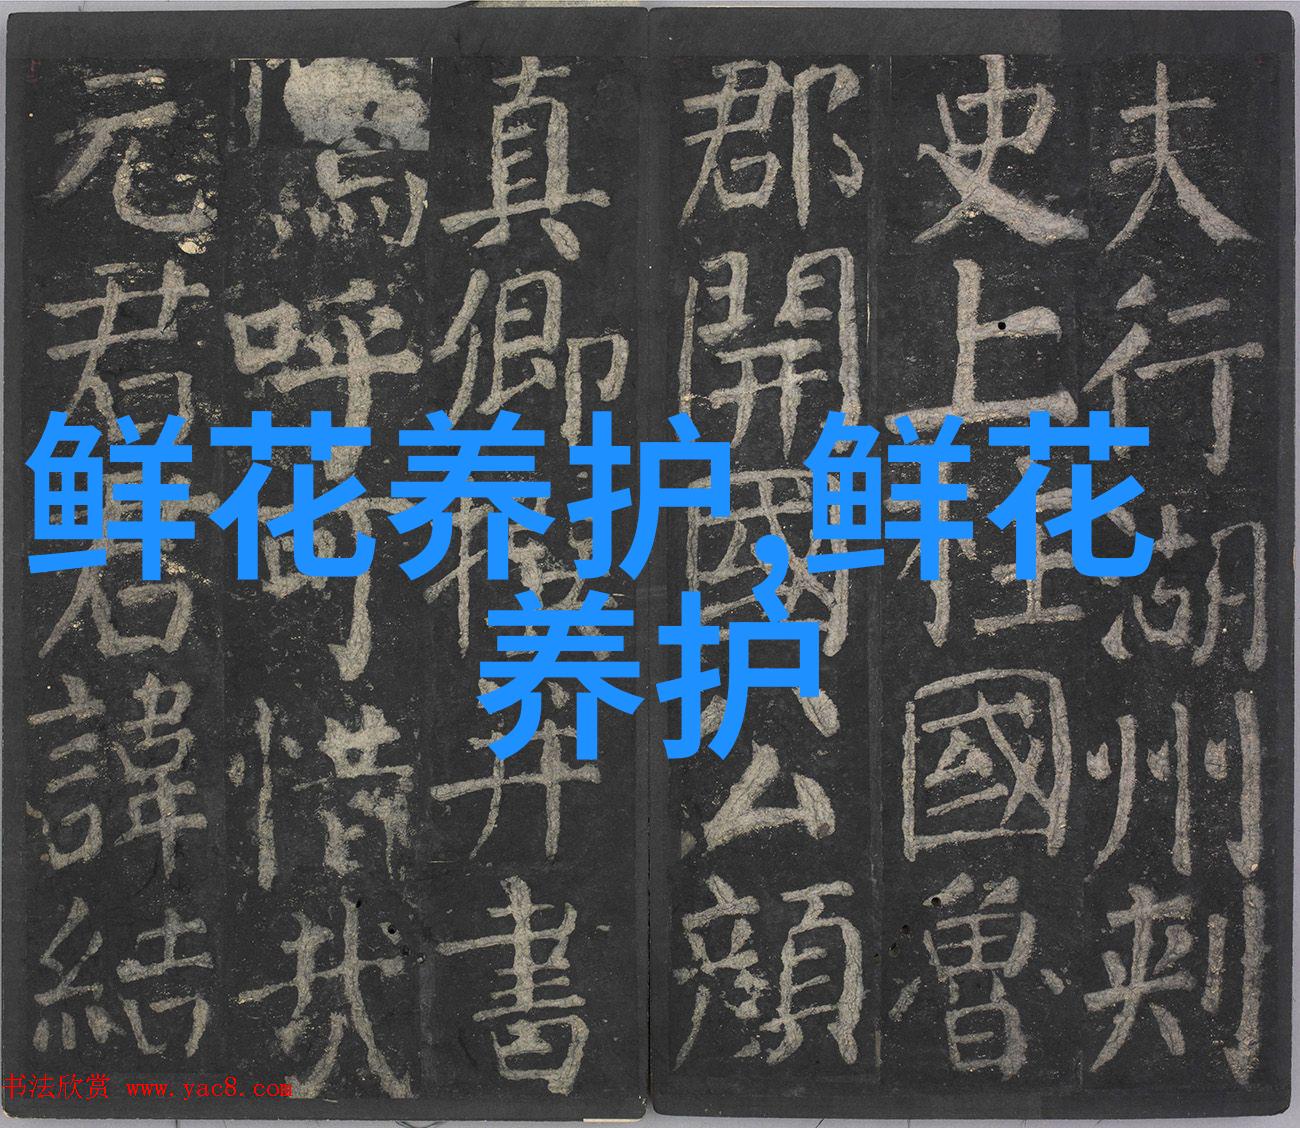 夫行湖州刾
史上柱國魯
郡開國公顏
真卿撰并書
嗚呼可惜哉
元君君諱結
鲜花养护,鲜花
养护
书法欣赏 www.yac8.com